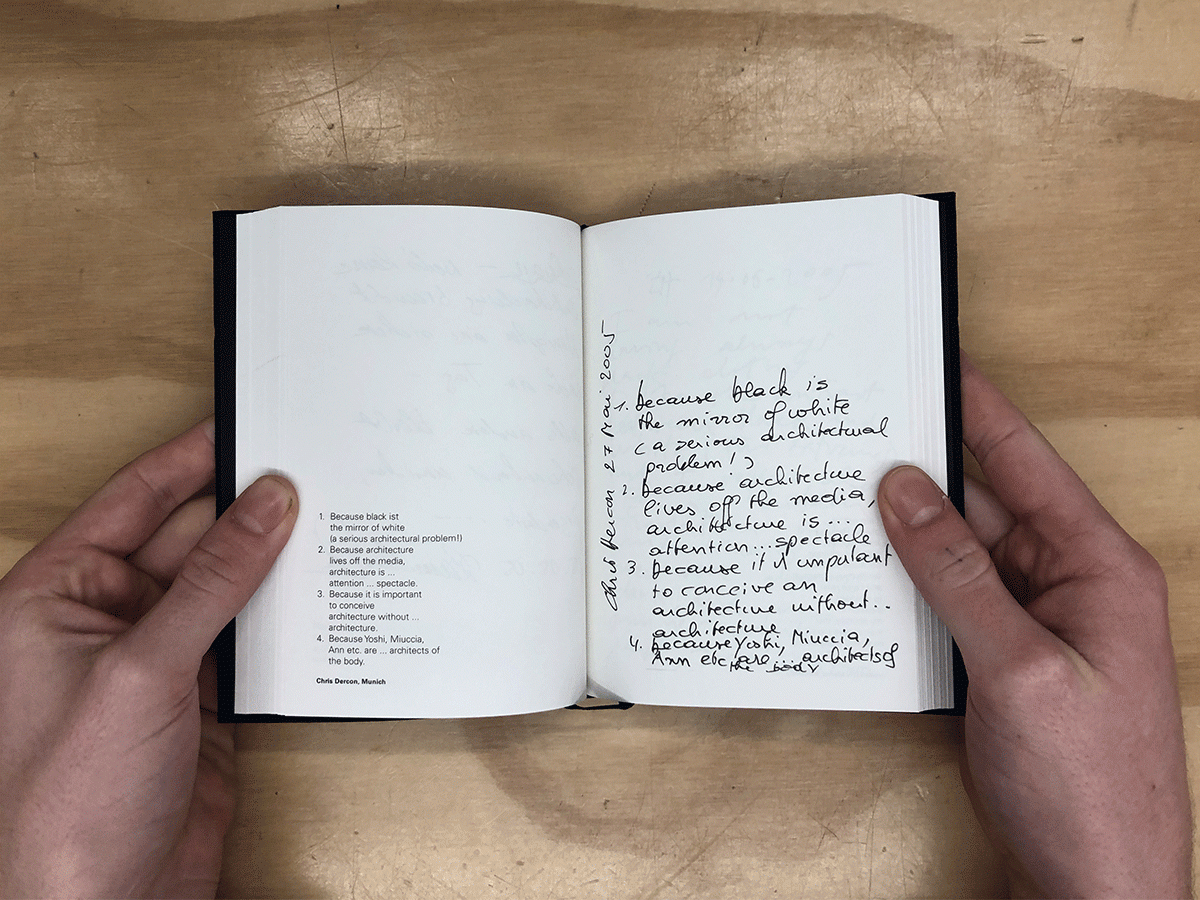 1. Because black ist
the mirror of white
(a serious architectural problem!)
2. Because architecture
lives off the media,
architecture is ...
attention ... spectacle.
3. Because it is important
to conceive
architecture without ...
architecture.
4. Because Yoshi, Miuccia,
Ann etc. are ... architects of
the body.
Chris Dercon, Munich
Chris Dercon 27 Mai 2005
1. because black is
the mirror of white
(a serious architectural
problem!)
2. because architecture
lives off the media,
architecture is ...
attention ... spectacle
3. because it is important
to conceive an
architecture without ..
architecture
4. because Yoshi, Miuccia,
Ann etc. are ... architects of
the body